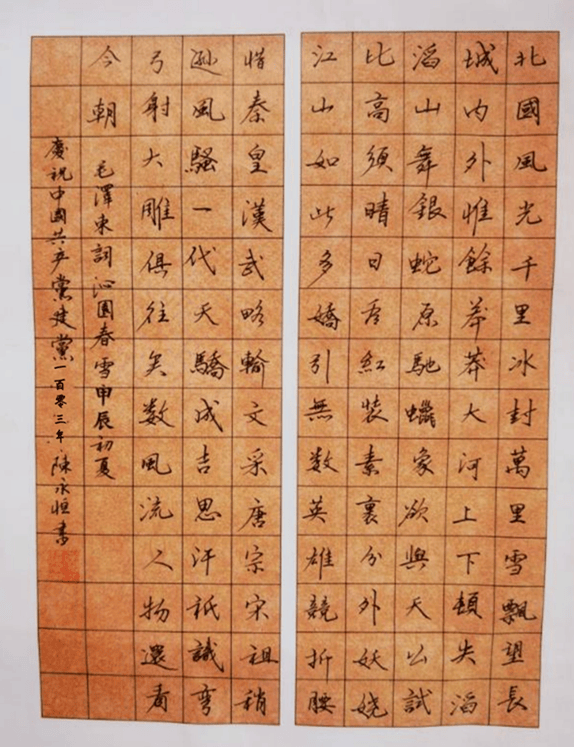 北國風光千里冰封萬里雪飄望長
城内外惟餘莽莽大河上下頓失滔
滔山舞銀蛇原馳蠟象欲與天公試
比高須晴日看紅裝素裹分外妖娆
江山如此多嬌引無数英雄競折腰
惜秦皇漢武略輸文采唐宗宋祖稍
遜風騷一代天驕成吉思汗祇識彎
弓射大雕俱往矣数風流人物還看
今朝 毛澤東詞沁園春雪甲辰初夏
慶祝中國共产黨建黨一百零三年 陳永恒書